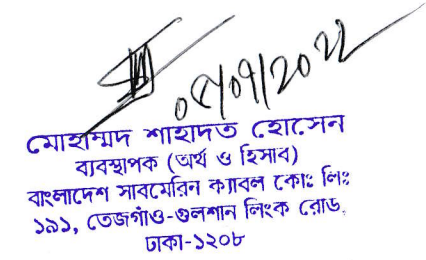 ০৫/০৭/২০২২
মোহাম্মদ শাহাদত হোসেন
ব্যবস্থাপক (অর্থ ও হিসাব)
বাংলাদেশ সাবমেরিন ক্যাবল কোঃ লিঃ
১৯১, তেজগাঁও-গুলশান লিংক রোড,
ঢাকা-১২০৮